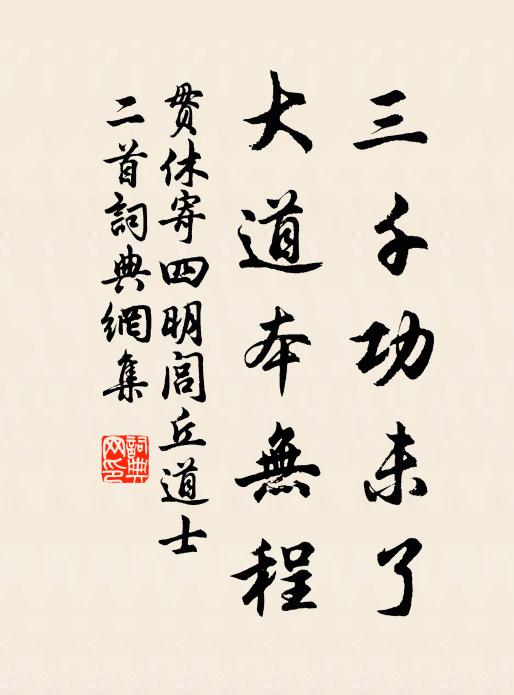 三千功未了
大道本無程
貫休寄四明閭丘道士
二首詞典網集
詞典
网印